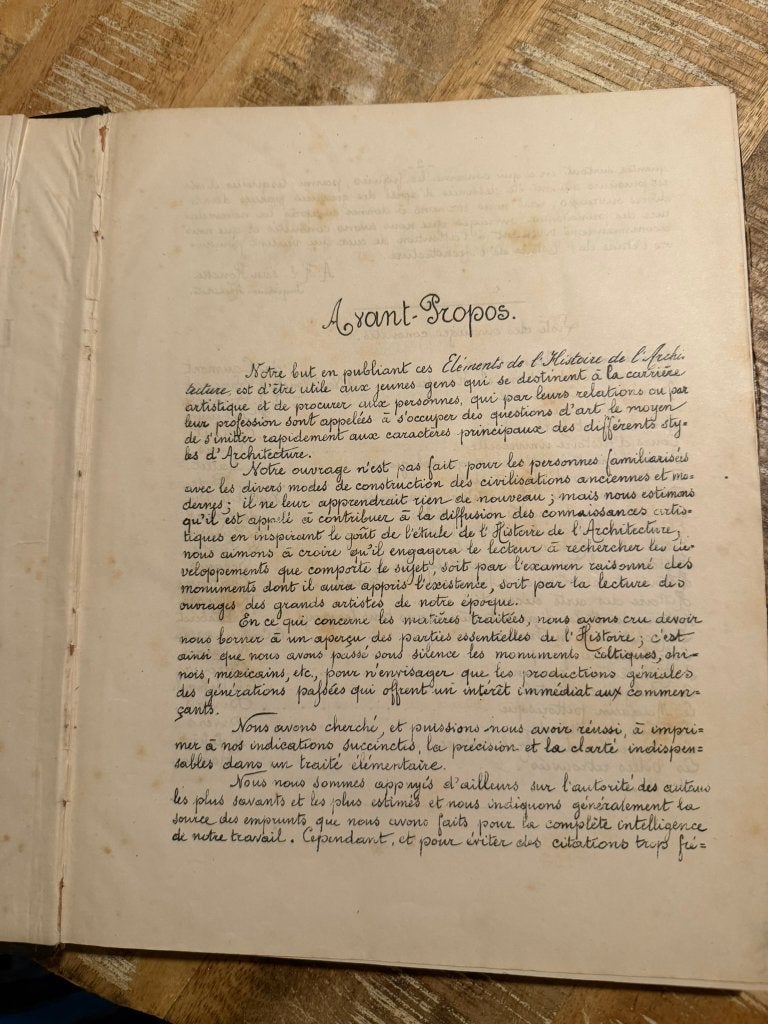 Avant-Propos.
Notre but en publiant ces Eléments de l'Histoire de l'Archi-
tecture, est d'être utile aux jeunes gens qui se destinent à la carrière
artistique et de procurer aux personnes, qui par leurs relations ou par
leur profession sont appelées à s'occuper des questions d'art le moyen
de s'initier rapidement aux caractères principaux des différents sty-
les d'Architecture.
Notre ouvrage n'est pas fait pour les personnes familiarisées
avec les divers modes de construction des civilisations anciennes et mo-
dernes; il ne leur apprendrait rien de nouveau; mais nous estimons
qu'il est appelé à contribuer à la diffusion des connaissances artis-
tiques en inspirant le goût de l'étude de l'Histoire de l'Architecture;
nous aimons à croire qu'il engagera le lecteur à rechercher les dé-
veloppements que comporte le sujet, soit par l'examen raisonné des
monuments dont il aura appris l'existence, soit par la lecture des
ouvrages des grands artistes de notre époque.
En ce qui concerne les matières traitées, nous avons cru devoir
nous borner à un aperçu des parties essentielles de l'Histoire; c'est
ainsi que nous avons passé sous silence les monuments Celtiques, chi-
nois, mexicains, etc., pour n'envisager que les productions géniales
des générations passées qui offrent un intérêt immédiat aux commen-
çants.
Nous avons cherché, et puissions-nous avoir réussi, à impri-
mer à nos indications succinctes, la précision et la clarté indispen-
sables dans un traité élémentaire.
Nous nous sommes appuyés d'ailleurs sur l'autorité des auteurs
les plus savants et les plus estimés et nous indiquons généralement la
source des emprunts que nous avons faits pour la complète intelligence
de notre travail. Cependant, et pour éviter des citations trop fré=